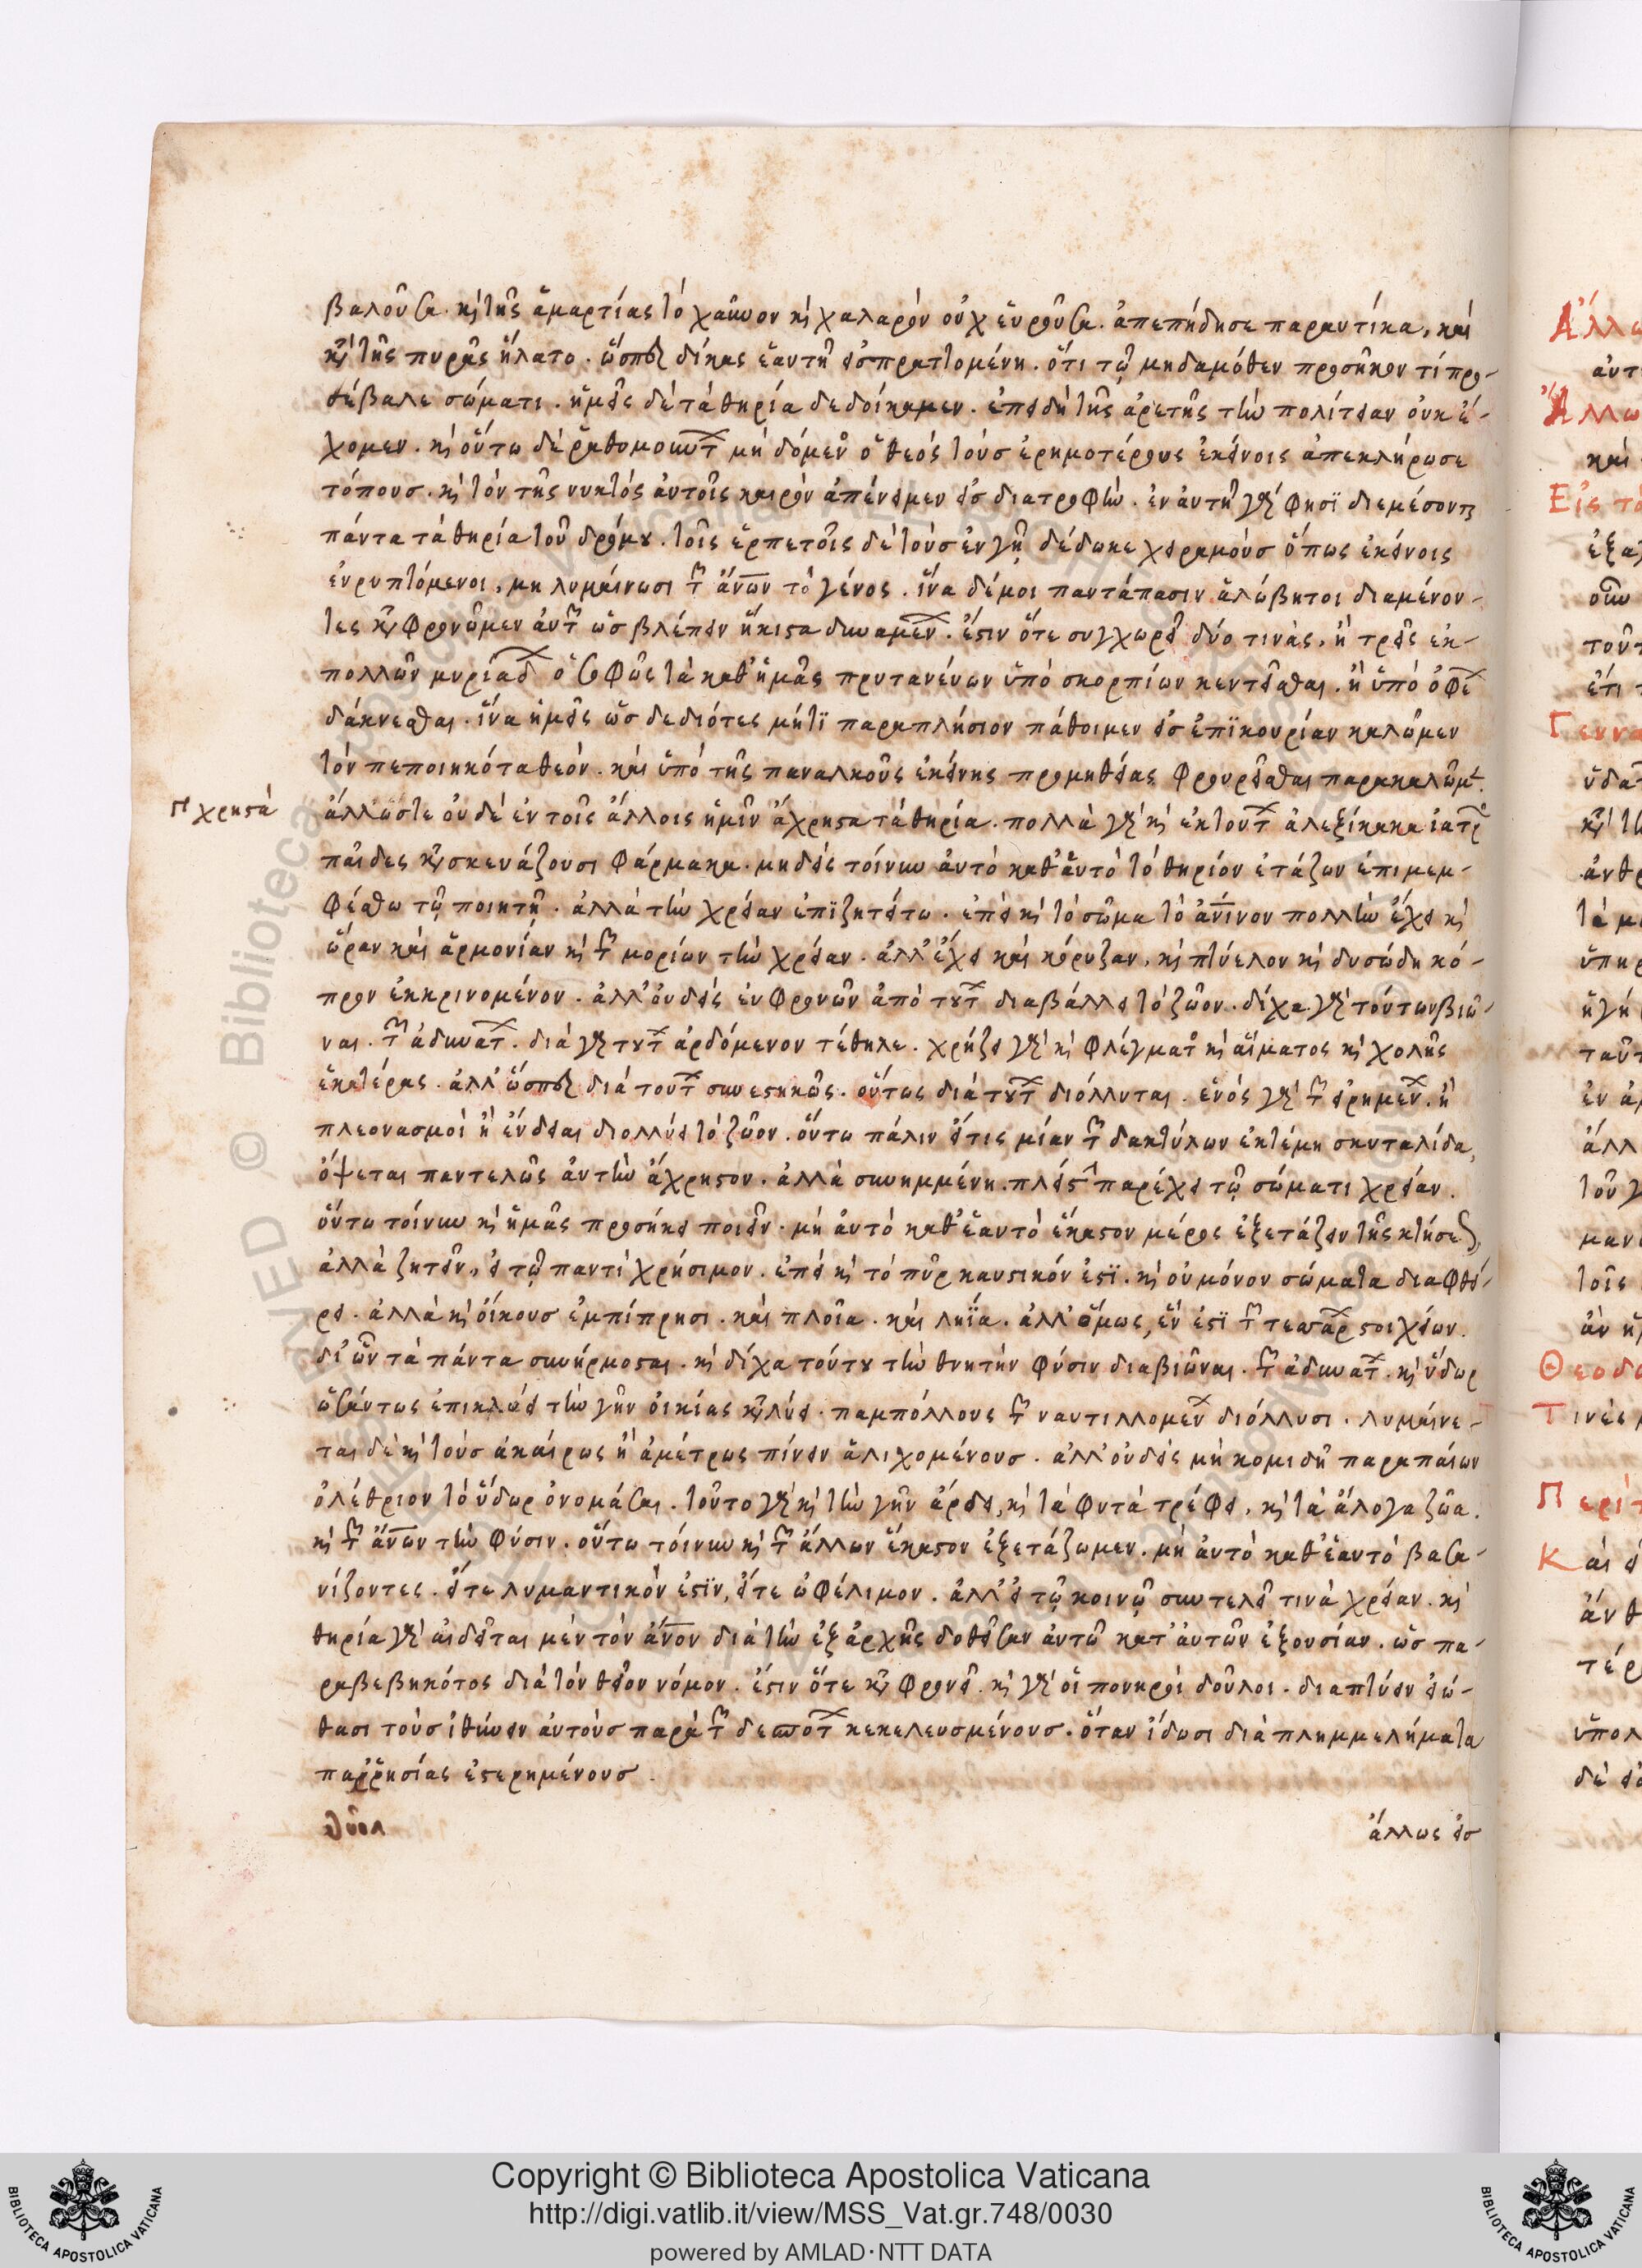 βαλοῦσα. κὶ τῆς ἁμαρτίας τὸ χαῦνον κὶ χαλαρὸν οὐχ εὑροῦσα. ἀπεπήδησε παραυτίκα, καὶ
κỳ τῆς πυρᾶς ἥλατο. ὥσπερ δίκας ἑαυτὴ εἰσπραττομένη. ὅτι τῶ μηδαμόθεν προσῆκον τί προ-
σέβαλε σώματι. ἡμεῖς δὲ τὰ θηρία δεδοίκαμεν. ἐπειδὴ τῆς ἀρετῆς τὴν πολιτείαν οὐκ ἔ-
χομεν. κὶ οὕτω δὲ ῥαθυμούντ μὴ δόμεν ὁ θεὸς τοὺσ ἐρημοτέρους ἐκείνοις ἀπεκλήρωσε
τόπουσ. κὶ τὸν τῆς νυκτὸς αὐτοῖς καιρὸν ἀπένειμεν εἰσ διατροφὴν. ἐν αὐτῆ γὰρ φησὶ διελεύσονται
πάντα τὰ θηρία τοῦ δρυμοῦ. τοῖς ἑρπετοῖς δὲ τοὺσ ἐν γῆ δέδωκε χηραμοὺσ ὅπως ἐκείνοις
ἐνρυπτόμενοι, μη λυμαίνωσι τῶν ἀνων τὸ γένος. ἵνα δέ μοι παντάπασιν ἀλώβητοι διαμένον-
τες κỳφρονῶμεν αὐτ ὡσ βλέπειν ἥκιστα δυναμέν. ἔστιν ὅτε συγχωρεῖ δύο τινὰς, ἢ τρεῖς ἐκ-
πολλῶν μυριάδ ὁ σοφῶς τὰ καθ' ἡμᾶς πρυτανεύων ὑπὸ σκορπίων κεντεῖσθαι. ἢ ὑπὸ ὄφε
δάκνεσθαι. ἵνα ἡμεῖς ὡσ δεδιότες μήτι παραπλήσιον πάθοιμεν εἰσ ἐπικουρίαν καλῶμεν
τὸν πεποιηκότα θεὸν. καὶ ὑπὸ τῆς παναλκοῦς ἐκείνης προμηθείας φρουρεῖσθαι παρακαλῶμ.
π χρηστὰ
ἄλλωστε οὐδὲ ἐν τοῖς ἄλλοις ἡμῖν ἄχρηστα τὰ θηρία. πολλὰ γὰρ κὶ ἐκ τούτ ἀλεξίκακα ἰατρ
παῖδες κỳσκευάζουσι φάρμακα. μηδεὶς τοίνυν αὐτὸ καθ' αὑτὸ τὸ θηρίον ἐτάζων ἐπιμεμ-
φέσθω τῶ ποιητῆ. ἀλλὰ τὴν χρείαν ἐπιζητείτω. ἐπεὶ κὶ τὸ σῶμα τὸ ἀνινον πολλὴν ἔχει κὶ
ὥραν καὶ ἁρμονίαν κὶ τῶν μορίων τὴν χρείαν. ἀλλ' ἔχει καὶ κόρυζαν, κὶ πτύελον κὶ δυσώδη κό-
προν ἐκκρινομένον. ἀλλ' οὐδεὶς εὐφρονῶν ἀπὸ τούτ διαβάλλει τὸ ζῶον. δίχα γὰρ τούτων βιῶ-
ναι. τῶν ἀδυνάτ. διὰ γὰρ τούτ ἀρδόμενον τέθηλε. χρήζει γὰρ κὶ φλέγματ κὶ αἵματος κὶ χολῆς
ἑκατέρας. ἀλλ' ὥσπερ διὰ τούτ συνεστηκὼς. οὕτως διὰ τούτ διόλλυται. ἑνὸς γὰρ τῶν εἰρημέν. ἢ
πλεονασμοὶ ἢ ἔνδειαι διολλύει τὸ ζῶον. οὕτω πάλιν εἴτις μίαν τῶν δακτύλων ἐκτέμη σκυταλίδα,
ὄψεται παντελῶς αὐτὴν ἄχρηστον. ἀλλὰ συνημμένη. πλείστ παρέχει τῶ σώματι χρείαν.
οὕτω τοίνυν κὶ ἡμᾶς προσήκει ποιεῖν. μὴ αὐτὸ καθ' ἑαυτὸ ἕκαστον μέρος ἐξετάζειν τῆς κτήσεως,
ἀλλὰ ζητεῖν, εἰ τῶ παντὶ χρήσιμον. ἐπεὶ κὶ τὸ πῦρ καυστικόν ἐστι. κὶ οὐ μόνον σώματα διαφθεί-
ρει. ἀλλὰ κὶ οἴκουσ ἐμπίπρησι. καὶ πλοῖα. καὶ λήϊα. ἀλλ' ὅμως, ἕν ἐστι τῶν τεσσάρ στοιχείων.
δι' ὧν τὰ πάντα συνήρμοσται. κὶ δίχα τούτου τὴν θνητὴν φύσιν διαβιῶναι. τῶν ἀδυνάτ. κὶ ὕδωρ
ὡσαύτως ἐπικλύζει τὴν γῆν οἰκίας κỳλύει. παμπόλλους τῶν ναυτιλλομέν διόλλυσι. λυμαίνε-
ται δὲ κὶ τοὺσ ἀκαίρως ἢ ἀμέτρως πίνειν ἁλιχομένουσ. ἀλλ' οὐδεὶς μὴ κομιδῆ παραπαίων
ὀλέθριον τὸ ὕδωρ ὀνομάσαι. τοῦτο γὰρ κὶ τὴν γῆν ἄρδει, κὶ τὰ φυτὰ τρέφει, κὶ τὰ ἄλογα ζῶα.
κὶ τῶν ἀνων τὴν φύσιν. οὕτω τοίνυν κὶ τῶν ἄλλων ἕκαστον ἐξετάζωμεν. μὴ αὐτὸ καθ' ἑαυτὸ βασα-
νίζοντες. εἴτε λυμαντικὸν ἐστὶν, εἴτε ὠφέλιμον. ἀλλ' εἰ τῶ κοινῶ συντελεῖ τινὰ χρείαν. κὶ
θηρία γὰρ αἰδεῖται μὲν τὸν ἄνον διὰ τὴν ἐξ ἀρχῆς δοθεῖσαν αὐτῶ κατ' αὐτῶν ἐξουσίαν. ὡσ πα-
ραβεβηκότος διὰ τὸν θεῖον νόμον. ἔστιν ὅτε κỳφρονεῖ. κὶ γὰρ οἱ πονηροὶ δοῦλοι. διαπτύειν εἰώ-
θασι τοὺσ ἰθύνειν αὐτοὺσ παρὰ τῶν δεσποτ κεκελευσμένουσ. ὅταν ἴδωσι διὰ πλημμελήματα
παῤῥησίας ἐστερημένουσ.
ἄλλως εἰσ